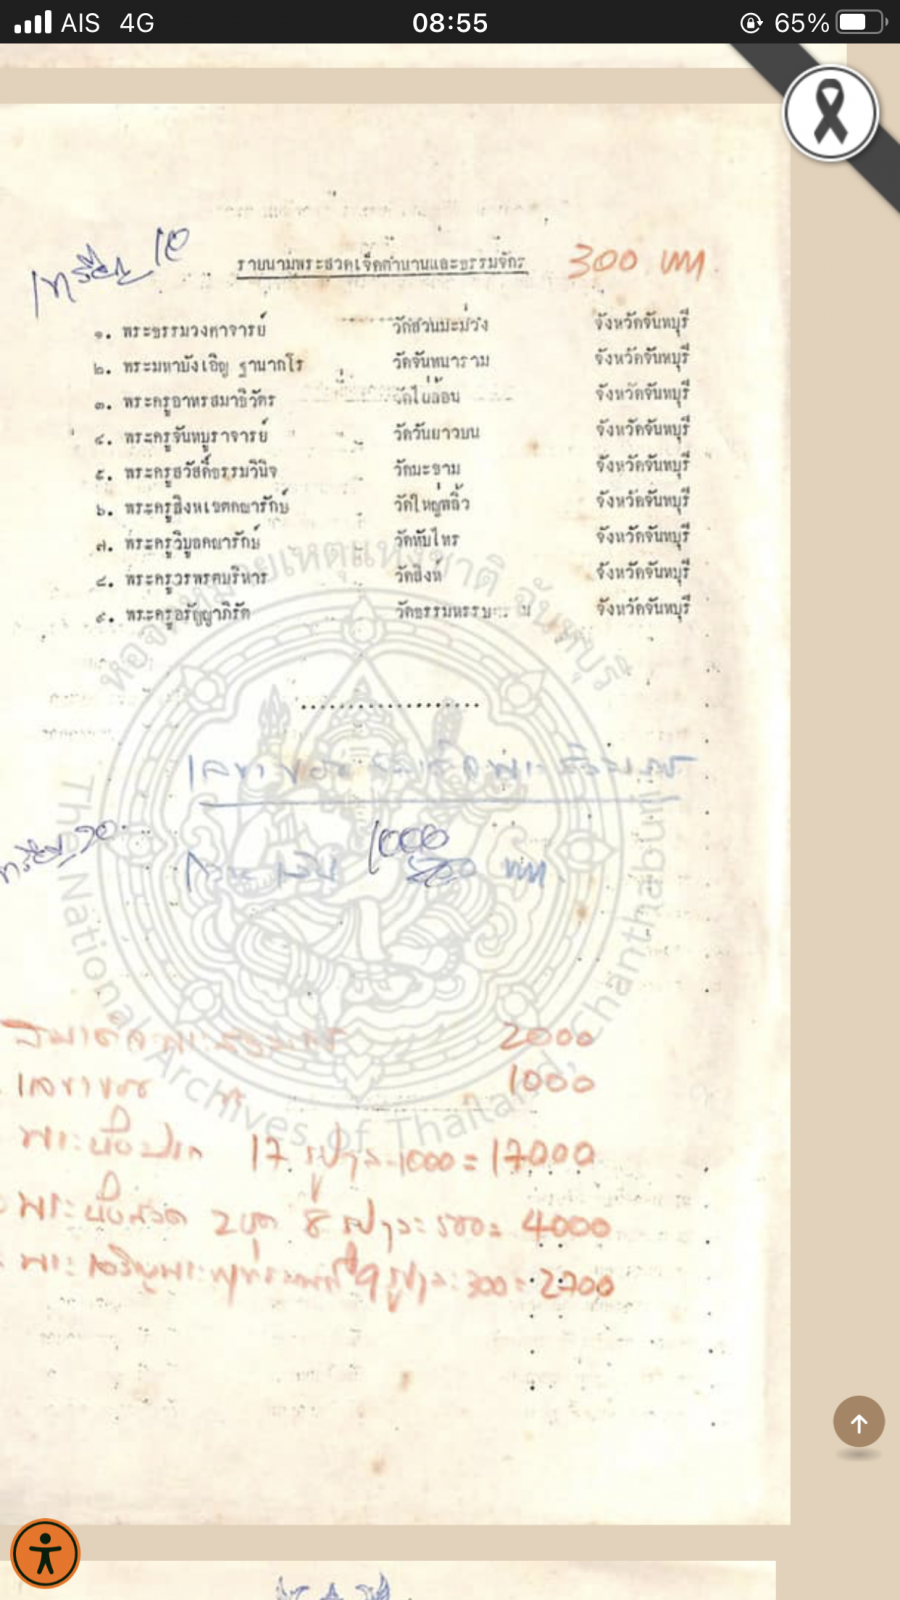 AIS 4G 08:55 65%
รายนามพระสวดเจ็ดตำนานและธรรมจักร 300 บาท
เหรียญ 10
๑. พระธรรมวงศาจารย์ วัดสวนมะม่วง จังหวัดจันทบุรี
๒. พระมหาบังเอิญ ฐานากโร วัดจันทนาราม จังหวัดจันทบุรี
๓. พระครูอาทรสมาธิวัตร วัดไผ่ล้อม จังหวัดจันทบุรี
๔. พระครูจันทบูราจารย์ วัดวันยาวบน จังหวัดจันทบุรี
๕. พระครูสวัสดิ์ธรรมวินิจ วัดมะขาม จังหวัดจันทบุรี
๖. พระครูสิงหเขตคณารักษ์ วัดใหญ่พลิ้ว จังหวัดจันทบุรี
๗. พระครูวิบูลคณารักษ์ วัดทับไทร จังหวัดจันทบุรี
๘. พระครูวรพรตบริหาร วัดสิงห์ จังหวัดจันทบุรี
๙. พระครูอรัญญาภิรัต จังหวัดจันทบุรี
หอจดหมายเหตุแห่งชาติ จันทบุรี
The National Archives of Thailand, Chanthaburi
เลขาของสมเด็จพระสังฆราช
เหรียญ 20
ถวายเงิน 1000 บาท
สมเด็จพระสังฆราช 2000
เลขาของ 1000
พระนั่งปรก 17 รูปๆละ 1000 = 17000
พระนั่งสวด 2 ชุด 8 รูปๆละ 500 = 4000
พระเจริญพระพุทธมนต์ 9 รูปๆละ 300 = 2700